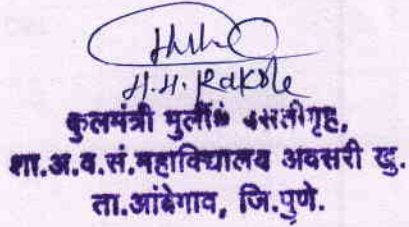 H.H. Rakole
कुलमंत्री मुलींचे वसतीगृह,
शा.अ.व.सं.महाविद्यालय अवसरी खु.
ता.आंबेगाव, जि.पुणे.